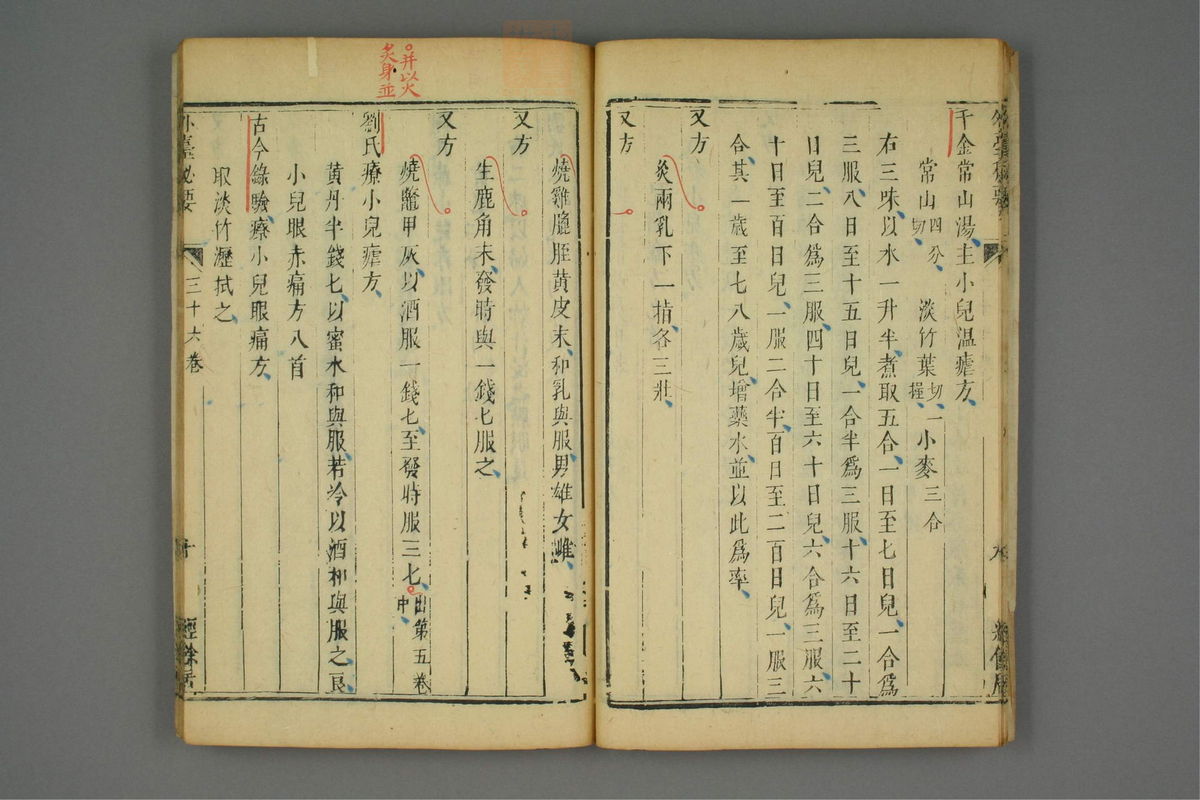 千金常山湯主小兒温瘧方
常山四分切 淡竹葉切一握 小麥三合
右三味以水一升半煮取五合一日至七日兒一合爲
三服八日至十五日兒一合半爲三服十六日至二十
日兒二合爲三服四十日至六十日兒六合爲三服六
十日至百日兒一服二合半百日至二百日兒一服三
合其一歲至七八歲兒增藥水並以此爲率
又方
灸兩乳下一指各三壯
又方
燒雞膍胵黄皮末和乳與服男雄女雌
又方
生鹿角末發時與一錢匕服之
又方
燒鼈甲灰以酒服一錢匕至發時服三匕出第五卷中
并以火
炙身並
劉氏療小兒瘧方
黄丹半錢匕以蜜水和與服若冷以酒和與服之良
小兒眼赤痛方八首
古今錄驗療小兒眼痛方
取淡竹瀝拭之
外臺秘要 三十六卷 十 經餘居